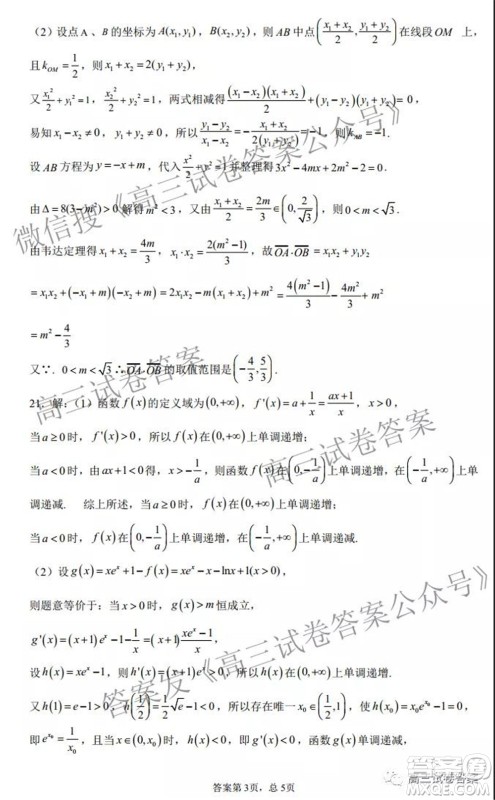 （2）设点A、B的坐标为A(x₁,y₁)，B(x₂,y₂)，则AB中点((x₁+x₂)/2,(y₁+y₂)/2)在线段OM 上，
且k_{OM}=1/2，则x₁+x₂=2(y₁+y₂)，
又x₁²/2+y₁²=1，x₂²/2+y₂²=1，两式相减得(x₁-x₂)(x₁+x₂)/2+(y₁-y₂)(y₁+y₂)=0，
易知x₁-x₂≠0，y₁+y₂≠0，所以(y₁-y₂)/(x₁-x₂)=-(x₁+x₂)/(2(y₁+y₂))=-1，则k_{AB}=-1.
设AB方程为y=-x+m，代入x²/2+y²=1并整理得3x²-4mx+2m²-2=0.
由Δ=8(3-m²)>0解得m²<3，又由(x₁+x₂)/2=2m/3∈(0,2/√3)，则0<m<√3.
由韦达定理得x₁+x₂=4m/3，x₁·x₂=2(m²-1)/3，故OA·OB=x₁x₂+y₁y₂
=x₁x₂+(-x₁+m)(-x₂+m)=2x₁x₂-m(x₁+x₂)+m²=4(m²-1)/3-4m²/3+m²
=m²-4/3
又∵.0<m<√3∴OA·OB的取值范围是(-4/3,5/3).
21．解：（1）函数f(x)的定义域为(0,+∞)，f'(x)=a+1/x=(ax+1)/x，x>0，
当a≥0时，f'(x)>0，所以f(x)在(0,+∞)上单调递增；
当a<0时，由ax+1<0得，x>-1/a，则函数f(x)在(0,-1/a)上单调递增，在(-1/a,+∞)上单
调递减. 综上所述，当a≥0时，f(x)在(0,+∞)上单调递增；
当a<0时，f(x)在(0,-1/a)上单调递增，在(-1/a,+∞)上单调递减.
（2）设g(x)=xeˣ+1-f(x)=xeˣ-x-lnx+1(x>0)，
则题意等价于：当x>0时，g(x)>m恒成立，
g'(x)=(x+1)eˣ-1-1/x=(x+1)(xeˣ-1)/x，
设h(x)=xeˣ-1，则h'(x)=(x+1)eˣ>0，所以h(x)在(0,+∞)上单调递增，
又h(1)=e-1>0，h(1/2)=1/2√e-1<0，所以存在唯一x₀∈(1/2,1)，使h(x₀)=x₀e^{x₀}-1=0，
即e^{x₀}=1/x₀，且当x∈(0,x₀)时，h(x)<0，即g'(x)<0，函数g(x)单调递减，
答案第3页，总5页
微信搜《高三试卷答案公众号》
高三试卷答案
高三试卷答案
答案发《高三试卷答案公众号》
高三试卷答案
答案圈
MXQE.COM